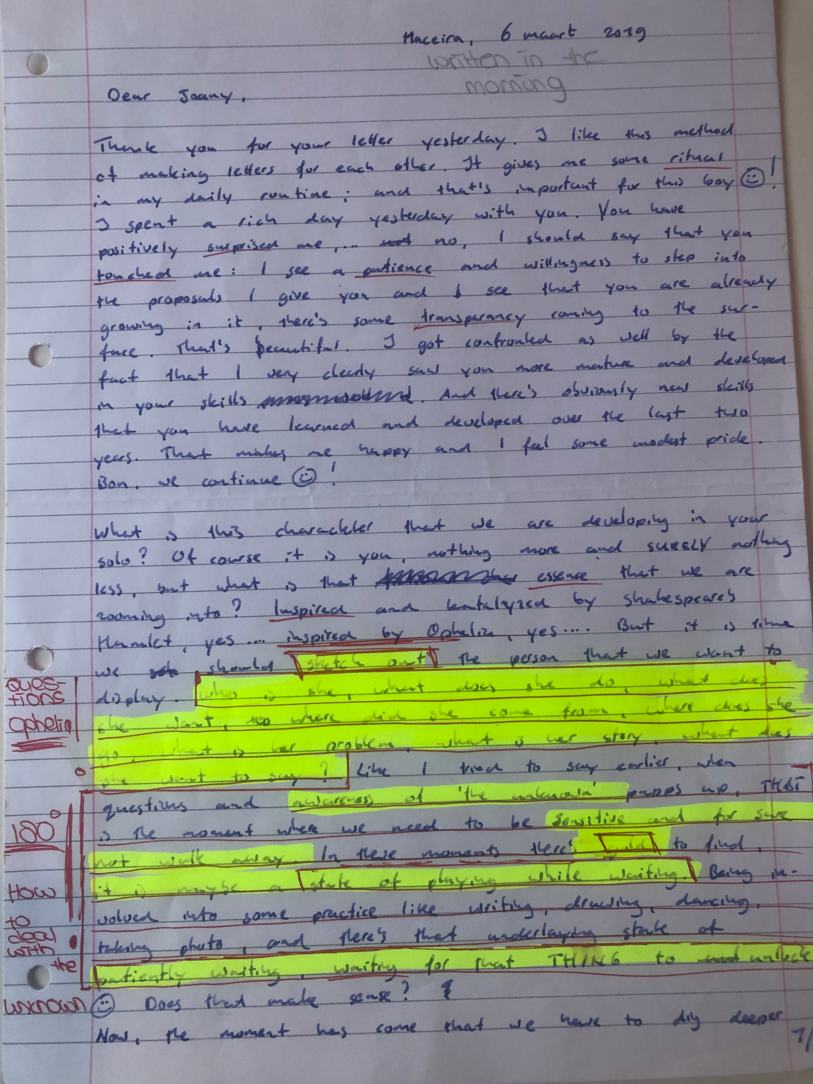 Maceira, 6 maart 2019
written in the
morning
Dear Joany,
Thank you for your letter yesterday. I like this method
of making letters for each other. It gives me some ritual
in my daily routine; and that's important for this boy ☺!
I spent a rich day yesterday with you. You have
positively surprised me,... no, I should say that you
touched me: I see a patience and willingness to step into
the proposals I give you and I see that you are already
growing in it, there's some transparancy coming to the sur-
face. That's beautiful. I got confronted as well by the
fact that I very clearly saw you more mature and developed
in your skills. And there's obviously new skills
that you have learned and developed over the last two
years. That makes me happy and I feel some modest pride.
Bon, we continue ☺!
What is this charackter that we are developing in your
solo? Of course it is you, nothing more and SURELY nothing
less, but what is that essence that we are
zooming into? Inspired and katalyzed by Shakespeare's
Hamlet, yes.... inspired by Ophelia, yes.... But it is time
we should sketch out the person that we want to
display. Who is she, what does she do, what does
she want, where did she come from, where does she
go, what is her problem, what is her story, what does
she want to say? Like I tried to say earlier, when
questions and awareness of 'the unknown' popps up, THAT
is the moment where we need to be sensitive and for sure
not walk away. In these moments there's to find,
it is maybe a state of playing while waiting. Being in-
volved into some practice like writing, drawing, dancing,
taking photo, and there's that underlaying state of
patiently waiting, waiting for that THING to unlock
☺ Does that make sense?
Now, the moment has come that we have to dig deeper
1/
QUES-
TIONS
Ophelia
180°
HOW
to
deal
with
the
unknown